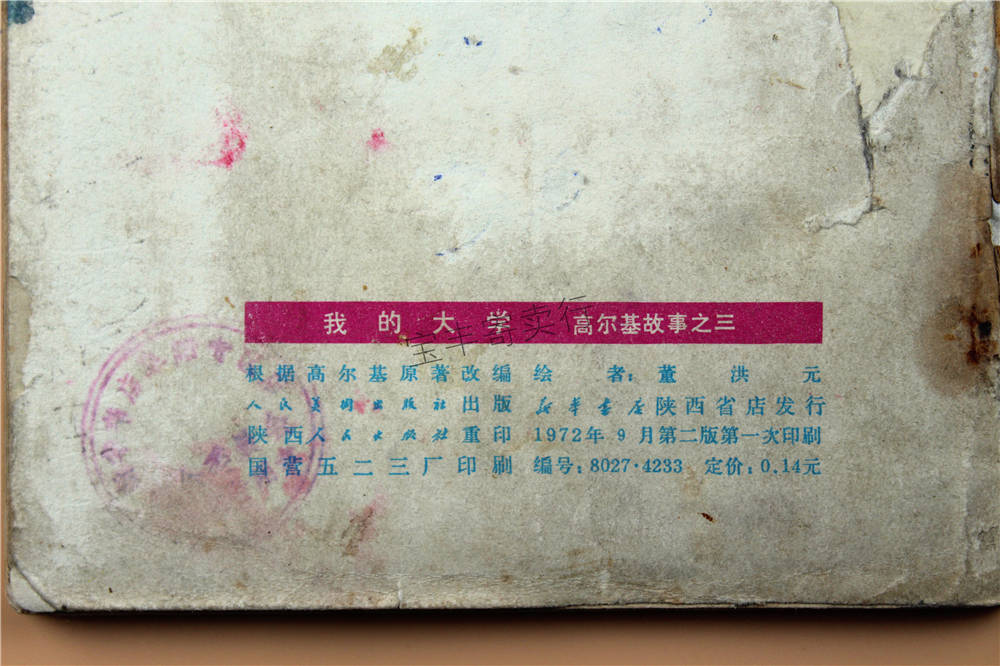 我的大学 高尔基故事之三
宝丰寄卖行
根据高尔基原著改编 绘者：董洪元
人民美术出版社出版 新华书店陕西省店发行
陕西人民出版社重印 1972年9月第二版第一次印刷
国营五二三厂印刷 编号：8027·4233 定价：0.14元